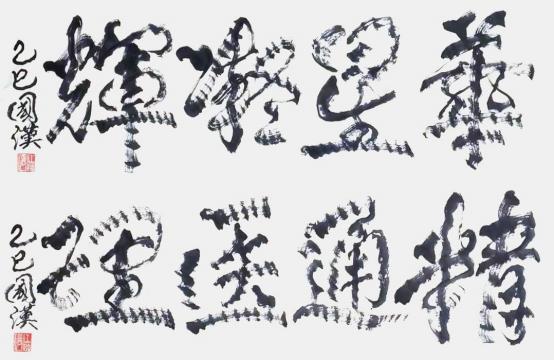 華星凝輝
乙巳國漢
精通達理
乙巳國漢